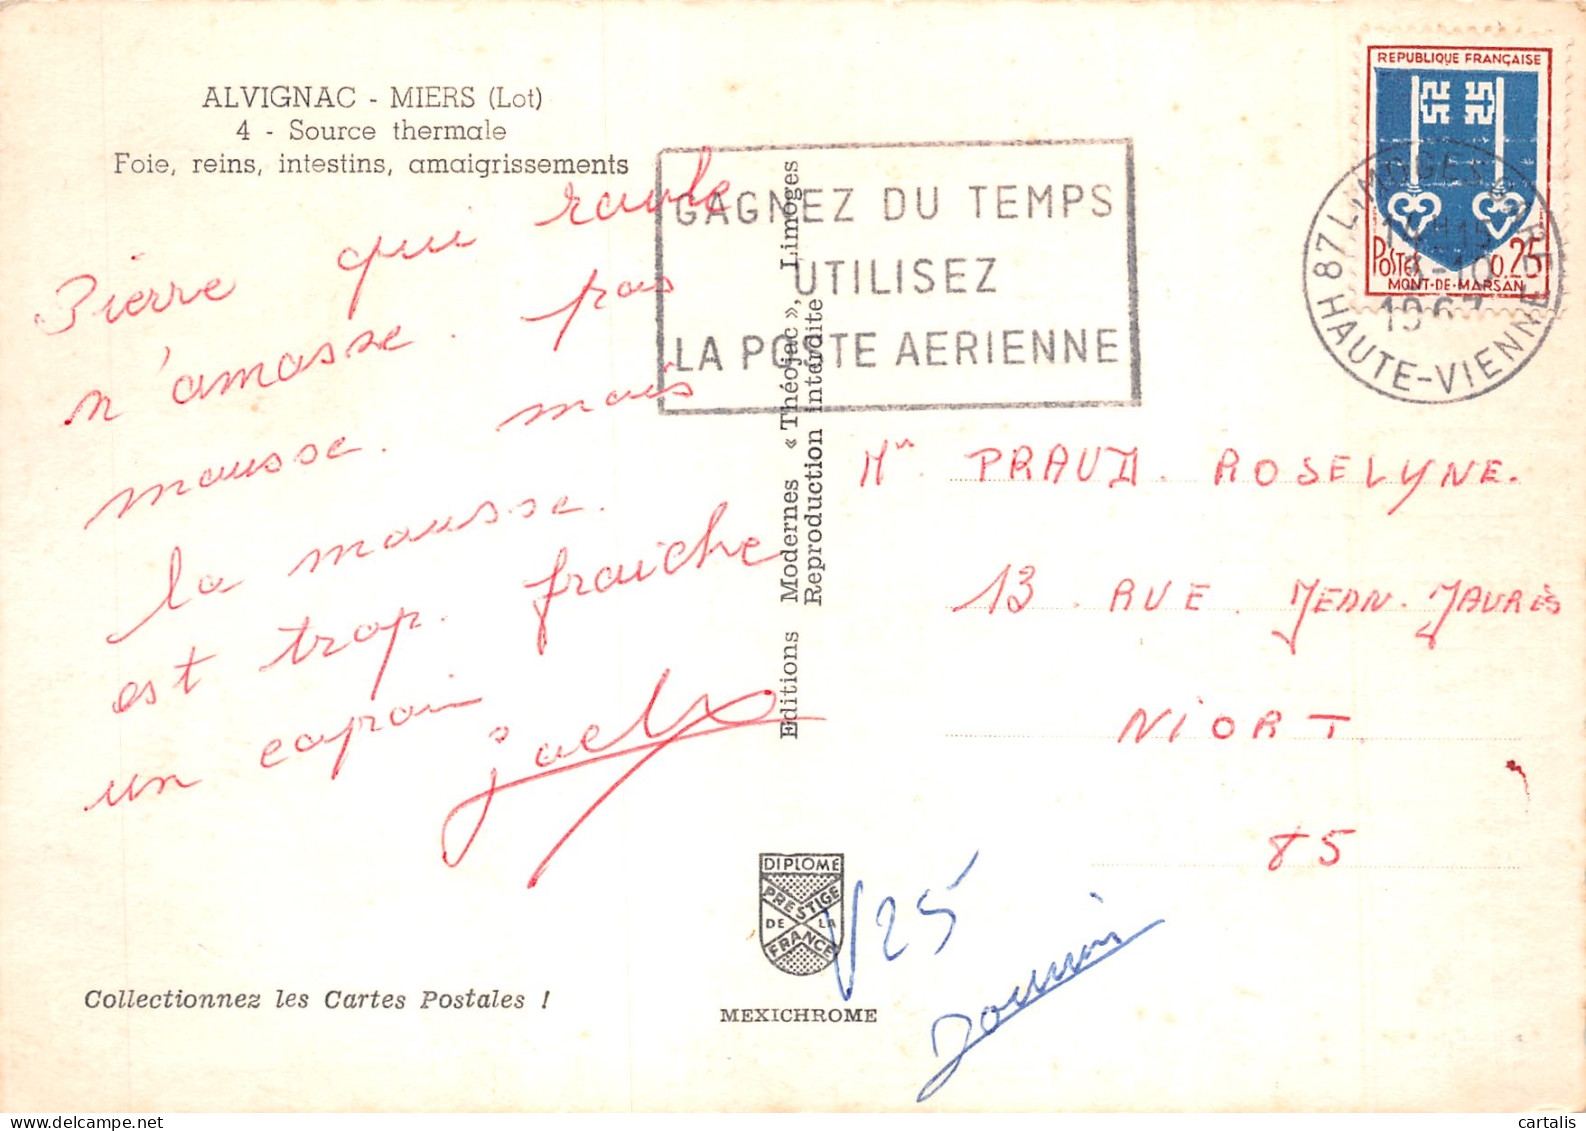 ALVIGNAC - MIERS (Lot)
4 - Source thermale
Foie, reins, intestins, amaigrissements
Pierre qui roule
n'amasse. pas
mousse. mais
la mousse.
est trop. fraiche
un copain
GAGNEZ DU TEMPS
UTILISEZ
LA POSTE AERIENNE
REPUBLIQUE FRANÇAISE
POSTES 0.25
MONT-DE-MARSAN
87 LIMOGES
14H15
-10
1967
HAUTE-VIENNE
Editions Modernes « Théojac », Limoges
Reproduction interdite
PRAUD. ROSELYNE.
13. RUE. JEAN. JAURÈS
NIORT.
85
DIPLOME
PRESTIGE
DE LA
FRANCE
MEXICHROME
V25
Collectionnez les Cartes Postales !
cartalis